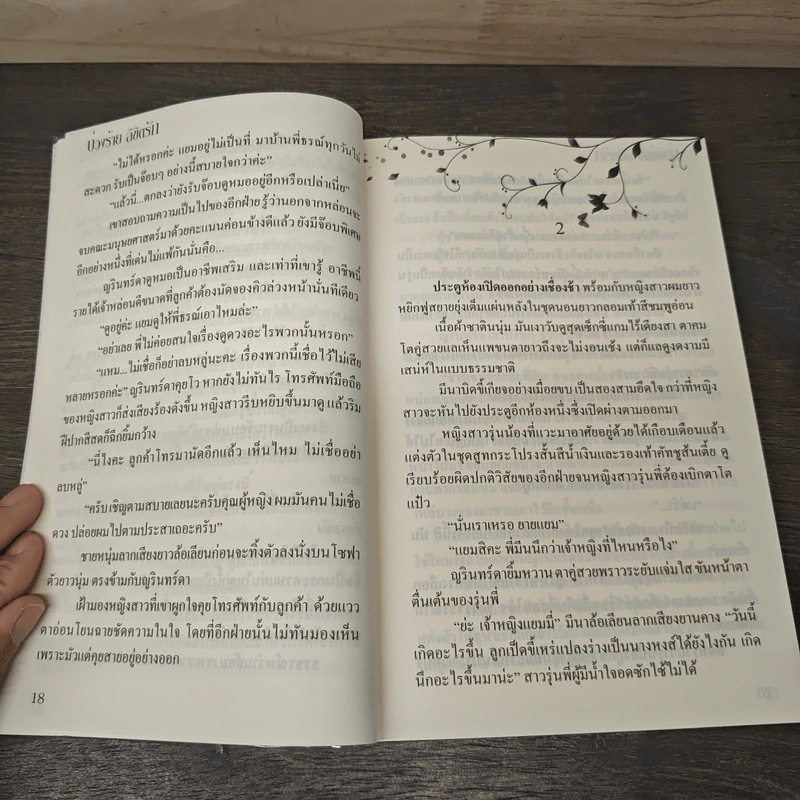 บ่วงร้าย ลิขิตรัก
“ไม่ได้หรอกค่ะ แยมอยู่ไม่เป็นที่ มาบ้านพี่ธรณ์ทุกวันไม่
สะดวก รับเป็นจ๊อบๆ อย่างนี้สบายใจกว่าค่ะ”
“แล้วนี่...ตกลงว่ายังรับจ๊อบดูหมออยู่อีกหรือเปล่าเนี่ย”
เขาสอบถามความเป็นไปของอีกฝ่าย รู้ว่านอกจากหล่อนจะ
จบคณะมนุษยศาสตร์มาด้วยคะแนนค่อนข้างดีแล้ว ยังมีจ๊อบพิเศษ
อีกอย่างหนึ่งที่เด่นไม่แพ้กันนั่นคือ...
ญรินทร์ดาดูหมอเป็นอาชีพเสริม และเท่าที่เขารู้ อาชีพนี้
รายได้เจ้าหล่อนดีขนาดที่ลูกค้าต้องนัดจองคิวล่วงหน้านั่นทีเดียว
“ดูอยู่ค่ะ แยมดูให้พี่ธรณ์เอาไหมล่ะ”
“อย่าเลย พี่ไม่ค่อยสนใจเรื่องดูดวงอะไรพวกนั้นหรอก”
“แหม...ไม่เชื่อก็อย่าลบหลู่นะคะ เรื่องพวกนี้เชื่อไว้ไม่เสีย
หลายหรอกค่ะ” ญรินทร์ดาคุยโว หากยังไม่ทันไร โทรศัพท์มือถือ
ของหญิงสาวก็ส่งเสียงร้องดังขึ้น หญิงสาวรีบหยิบขึ้นมาดู แล้วริม
ฝีปากสีสดก็ฉีกยิ้มกว้าง
“นี่ไงคะ ลูกค้าโทรมานัดอีกแล้ว เห็นไหม ไม่เชื่ออย่า
ลบหลู่”
“ครับ เชิญตามสบายเลยนะครับคุณผู้หญิง ผมมันคนไม่เชื่อ
ดวง ปล่อยผมไปตามประสาเถอะครับ”
ชายหนุ่มลากเสียงยาวล้อเลียนก่อนจะทิ้งตัวลงนั่งบนโซฟา
ตัวยาวนุ่ม ตรงข้ามกับญรินทร์ดา
เฝ้ามองหญิงสาวที่เขาผูกใจคุยโทรศัพท์กับลูกค้า ด้วยแวว
ตาอ่อนโยนฉายชัดความในใจ โดยที่อีกฝ่ายนั้นไม่ทันมองเห็น
เพราะมัวแต่คุยสายอยู่อย่างออก
18
2
ประตูห้องเปิดออกอย่างเชื่องช้า พร้อมกับหญิงสาวผมยาว
หยิกฟูสยายยุ่งเต็มแผ่นหลังในชุดนอนยาวกลอมเท้าสีชมพูอ่อน
เนื้อผ้าซาตินนุ่ม มันเงาวับดูสุดเซ็กซี่แกมไร้เดียงสา ตาคม
โตคู่สวยแลเห็นแพขนตายาวถึงจะไม่งอนเช้ง แต่ก็แลดูงดงามมี
เสน่ห์ในแบบธรรมชาติ
มีนาบิดขี้เกียจอย่างเมื่อยขบ เป็นสองสามอึดใจ กว่าที่หญิง
สาวจะหันไปยังประตูอีกห้องหนึ่งซึ่งเปิดผ่างตามออกมา
หญิงสาวรุ่นน้องที่แวะมาอาศัยอยู่ด้วยได้เกือบเดือนแล้ว
แต่งตัวในชุดสูทกระโปรงสั้นสีน้ำเงินและรองเท้าคัทชูส้นเตี้ย ดู
เรียบร้อยผิดปกติวิสัยของอีกฝ่ายจนหญิงสาวรุ่นพี่ต้องเบิกตาโต
แป๋ว
“นั่นเราเหรอ ยายแยม”
“แยมสิคะ พี่มีนนึกว่าเจ้าหญิงที่ไหนหรือไง”
ญรินทร์ดายิ้มหวาน ตาคู่สวยพราวระยับแจ่มใส ขันหน้าตา
ตื่นเต้นของรุ่นพี่
“ย่ะ เจ้าหญิงแยมมี่” มีนาล้อเลียนลากเสียงยานคาง “วันนี้
เกิดอะไรขึ้น ลูกเป็ดขี้เหร่แปลงร่างเป็นนางหงส์ได้ยังไงกัน เกิด
นึกอะไรขึ้นมาน่ะ” สาวรุ่นพี่ผู้มีน้ำใจอดซักไซ้ไม่ได้